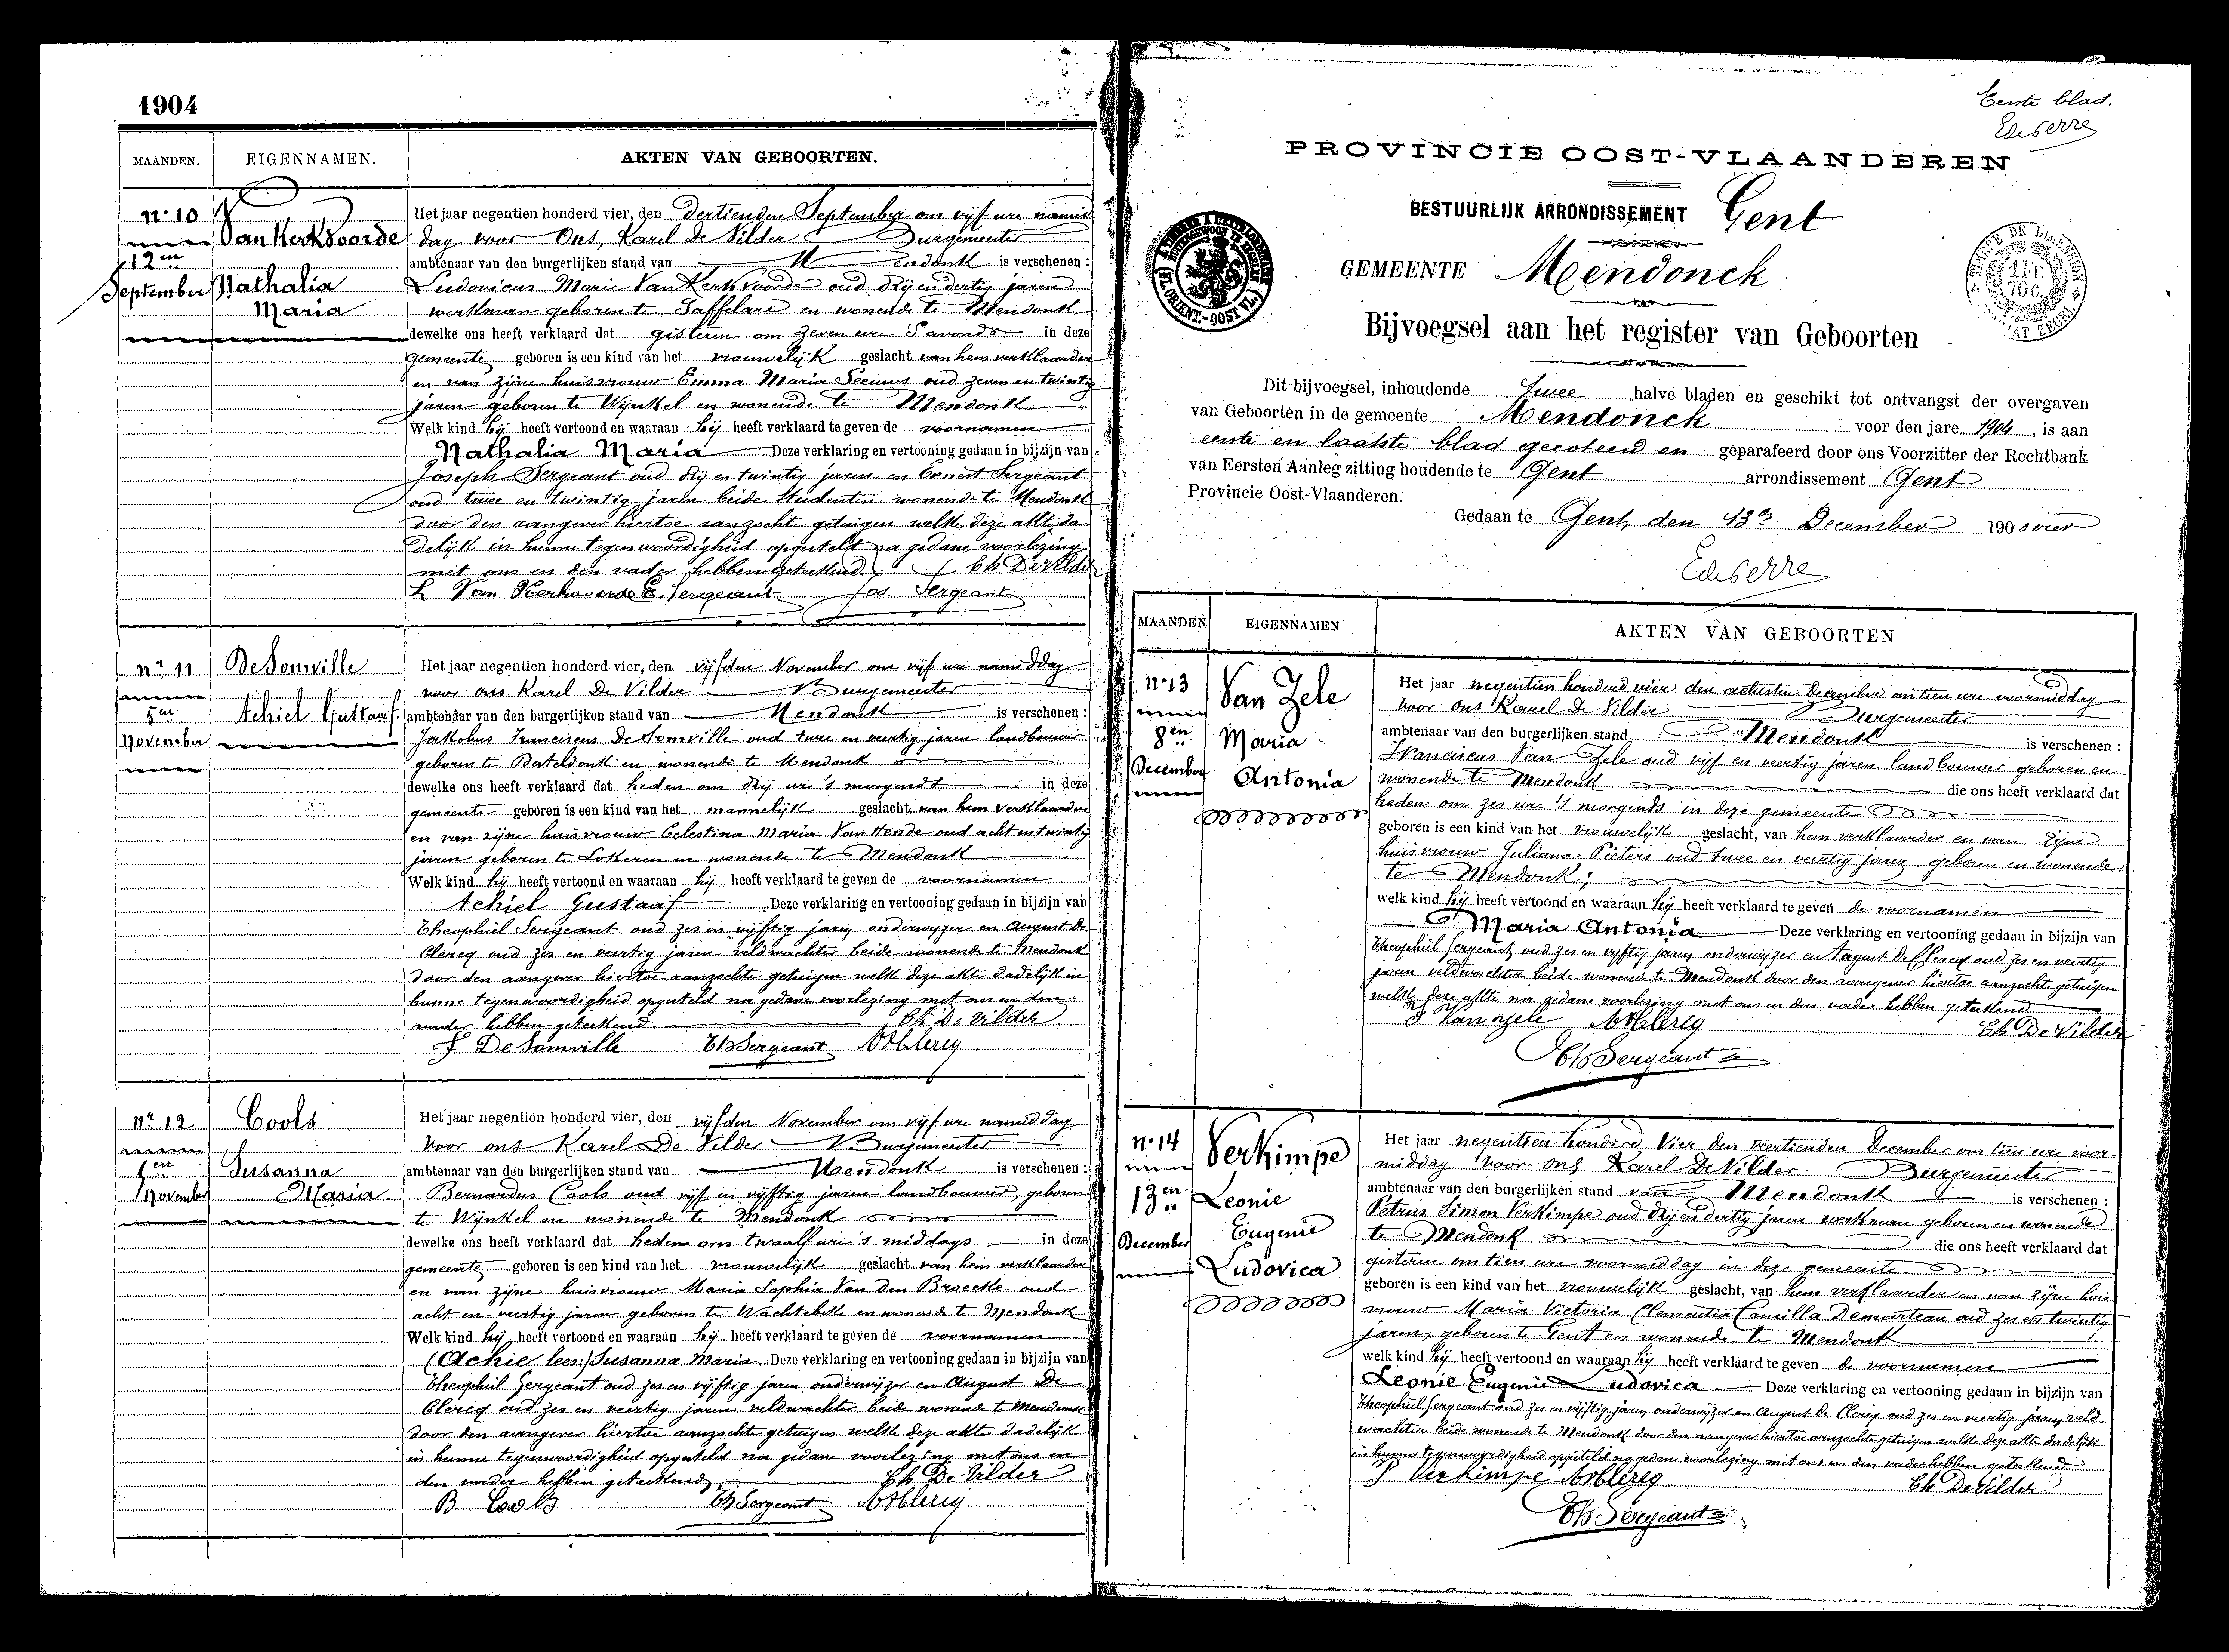 1904
MAANDEN. EIGENNAMEN. AKTEN VAN GEBOORTEN.
nr 10
Van Kerkvoorde
12en
September Nathalia
Maria
Het jaar negentien honderd vier, den dertienden September om vijf ure namid
dag voor Ons, Karel De Vilder Burgemeester
ambtenaar van den burgerlijken stand van Mendonk is verschenen :
Ludovicus Marie Van Kerkvoorde oud drij en dertig jaren
werkman geboren te Saffelare en wonende te Mendonk
dewelke ons heeft verklaard dat gisteren om zeven ure 's avonds in deze
gemeente geboren is een kind van het vrouwelijk geslacht van hem verklaarder
en van zijne huisvrouw Emma Maria Seeuws oud zeven en twintig
jaren geboren te Wijnkel en wonende te Mendonk
Welk kind hij heeft vertoond en waaraan hij heeft verklaard te geven de voornamen
Nathalia Maria Deze verklaring en vertooning gedaan in bijzijn van
Joseph Sergeant oud drij en twintig jaren en Ernest Sergeant
oud twee en twintig jaren beide studenten wonende te Mendonk
door den aangever hiertoe aanzochte getuigen welke deze akte da
delijk in hunne tegenwoordigheid opgesteld na gedane voorlezing
met ons en den vader hebben geteekend. Ch De Vilder
L Van Kerkvoorde E. Sergeant Jos Sergeant
nr 11 DeSomville
5en Achiel Gustaaf
November
Het jaar negentien honderd vier, den vijfden November om vijf ure namiddag
voor ons Karel De Vilder Burgemeester
ambtenaar van den burgerlijken stand van Mendonk is verschenen :
Jakobus Franciscus De Somville oud twee en veertig jaren landbouwer
geboren te Desteldonk en wonende te Mendonk
dewelke ons heeft verklaard dat heden om drij ure 's morgends in deze
gemeente geboren is een kind van het mannelijk geslacht van hem verklaarder
en van zijne huisvrouw Celestina Maria Van Hende oud acht en twintig
jaren geboren te Lokeren en wonende te Mendonk
Welk kind hij heeft vertoond en waaraan hij heeft verklaard te geven de voornamen
Achiel Gustaaf Deze verklaring en vertooning gedaan in bijzijn van
Theophiel Sergeant oud zes en vijftig jaren onderwijzer en August De
Clercq oud zes en veertig jaren veldwachter beide wonende te Mendonk
door den aangever hiertoe aanzochte getuigen welke deze akte dadelijk in
hunne tegenwoordigheid opgesteld na gedane voorlezing met ons en den
vader hebben geteekend. Ch De Vilder
F DeSomville Th Sergeant A De Clercq
nr 12 Cools
5en Susanna
November Maria
Het jaar negentien honderd vier, den vijfden November om vijf ure namiddag
voor ons Karel De Vilder Burgemeester
ambtenaar van den burgerlijken stand van Mendonk is verschenen :
Bernardus Cools oud vijf en vijftig jaren landbouwer, geboren
te Wijnkel en wonende te Mendonk
dewelke ons heeft verklaard dat heden om twaalf ure 's middags in deze
gemeente geboren is een kind van het vrouwelijk geslacht van hem verklaarder
en van zijne huisvrouw Maria Sophia Van Den Broecke oud
acht en veertig jaren geboren te Wachtebeke en wonende te Mendonk
Welk kind hij heeft vertoond en waaraan hij heeft verklaard te geven de voornamen
(Achie lees:) Susanna Maria. Deze verklaring en vertooning gedaan in bijzijn van
Theophiel Sergeant oud zes en vijftig jaren onderwijzer en August De
Clercq oud zes en veertig jaren veldwachter beide wonende te Mendonk
door den aangever hiertoe aanzochte getuigen welke deze akte dadelijk
in hunne tegenwoordigheid opgesteld na gedane voorlezing met ons en
den vader hebben geteekend Ch De Vilder
B Cools Th Sergeant A De Clercq
Eerste blad.
PROVINCIE OOST-VLAANDEREN
BESTUURLIJK ARRONDISSEMENT Gent
GEMEENTE Mendonck
Bijvoegsel aan het register van Geboorten
Dit bijvoegsel, inhoudende twee halve bladen en geschikt tot ontvangst der overgaven
van Geboorten in de gemeente Mendonck voor den jare 1904, is aan
eerste en laatste blad gecoteerd en geparafeerd door ons Voorzitter der Rechtbank
van Eersten Aanleg zitting houdende te Gent arrondissement Gent
Provincie Oost-Vlaanderen.
Gedaan te Gent, den 13en December 190 vier
MAANDEN EIGENNAMEN AKTEN VAN GEBOORTEN
nr 13 Van Zele
8en Maria
December Antonia
Het jaar negentien honderd vier den achtsten December om tien ure voormiddag
voor Ons Karel De Vilder Burgemeester
ambtenaar van den burgerlijken stand Mendonk is verschenen :
Franciscus Van Zele oud vijf en veertig jaren landbouwer geboren en
wonende te Mendonk die ons heeft verklaard dat
heden om zes ure 's morgends in deze gemeente
geboren is een kind van het vrouwelijk geslacht, van hem verklaarder en van zijne
huisvrouw Juliana Pieters oud twee en veertig jaren geboren en wonende
te Mendonk;
welk kind hij heeft vertoond en waaraan hij heeft verklaard te geven de voornamen
Maria Antonia Deze verklaring en vertooning gedaan in bijzijn van
Theophiel Sergeant oud zes en vijftig jaren onderwijzer en August De Clercq oud zes en veertig
jaren veldwachter beide wonende te Mendonk door den aangever hiertoe aanzochte getuigen
welke deze akte na gedane voorlezing met ons en den vader hebben geteekend
F Van Zele A De Clercq Ch De Vilder
Th Sergeant
nr 14 Verkimpe
13en Leonie
Eugenie
December
Ludovica
Het jaar negentien honderd Vier den veertienden December om tien ure voor-
middag voor ons Karel De Vilder Burgemeester
ambtenaar van den burgerlijken stand van Mendonk is verschenen :
Petrus Simon Verkimpe oud drij en dertig jaren werkman geboren en wonende
te Mendonk die ons heeft verklaard dat
gisteren om tien ure voormiddag in deze gemeente
geboren is een kind van het vrouwelijk geslacht, van hem verklaarder en van zijne huis
vrouw Maria Victoria Clementia Camilla Demonteau oud zes en twintig
jaren, geboren te Gent en wonende te Mendonk
welk kind hij heeft vertoond en waaraan hij heeft verklaard te geven de voornamen
Leonie Eugenie Ludovica Deze verklaring en vertooning gedaan in bijzijn van
Theophiel Sergeant oud zes en vijftig jaren onderwijzer en August De Clercq oud zes en veertig jaren veld
wachter beide wonende te Mendonk door den aangever hiertoe aanzochte getuigen welke deze akte dadelijk
in hunne tegenwoordigheid opgesteld na gedane voorlezing met ons en den vader hebben geteekend
P Verkimpe A De Clercq Ch De Vilder
Th Sergeant